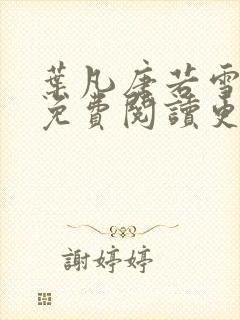 葉凡唐若雪
免費閱讀更
謝婷婷